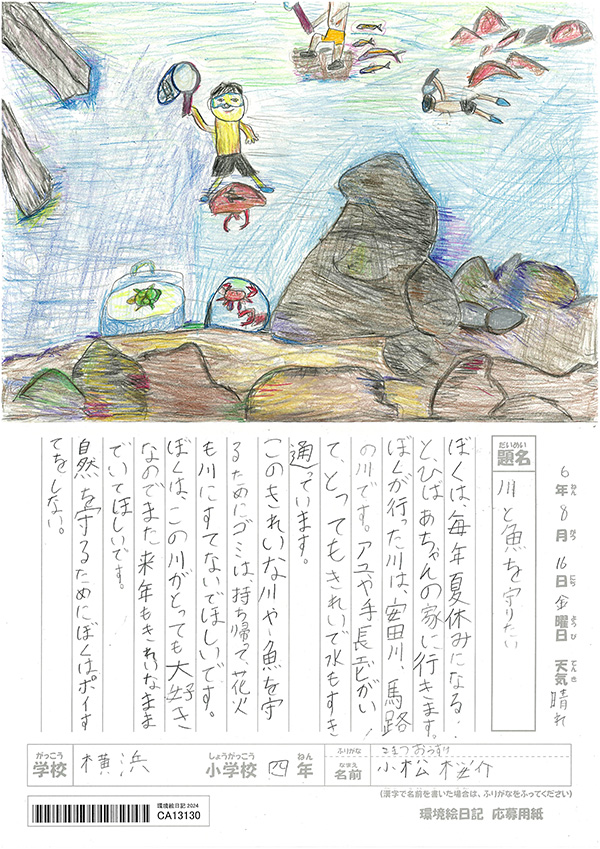 6年8月16日金曜日 天気 晴れ
ねん がつ にち ようび てんき
だいめい
題名
川と魚を守りたい
ぼくは、毎年夏休みになる
と、ひばあちゃんの家に行きます。
ぼくが行った川は、安田川、馬路
の川です。アユや手長エビがい
て、とってもきれいで水もすき
通っています。
このきれいな川や魚を守
るためにゴミは持ち帰って花火
も川にすてないでほしいです。
ぼくは、この川がとっても大好き
なのでまた来年もきれいなまま
でいてほしいです。
自然を守るためにぼくはポイす
てをしない。
がっこう
学校
横浜
しょうがっこう ねん
小学校 四 年
ふりがな
こまつ おうすけ
なまえ
名前
小松 桜介
(漢字で名前を書いた場合は、ふりがなをふってください)
環境絵日記 2024
CA13130
環境絵日記 応募用紙